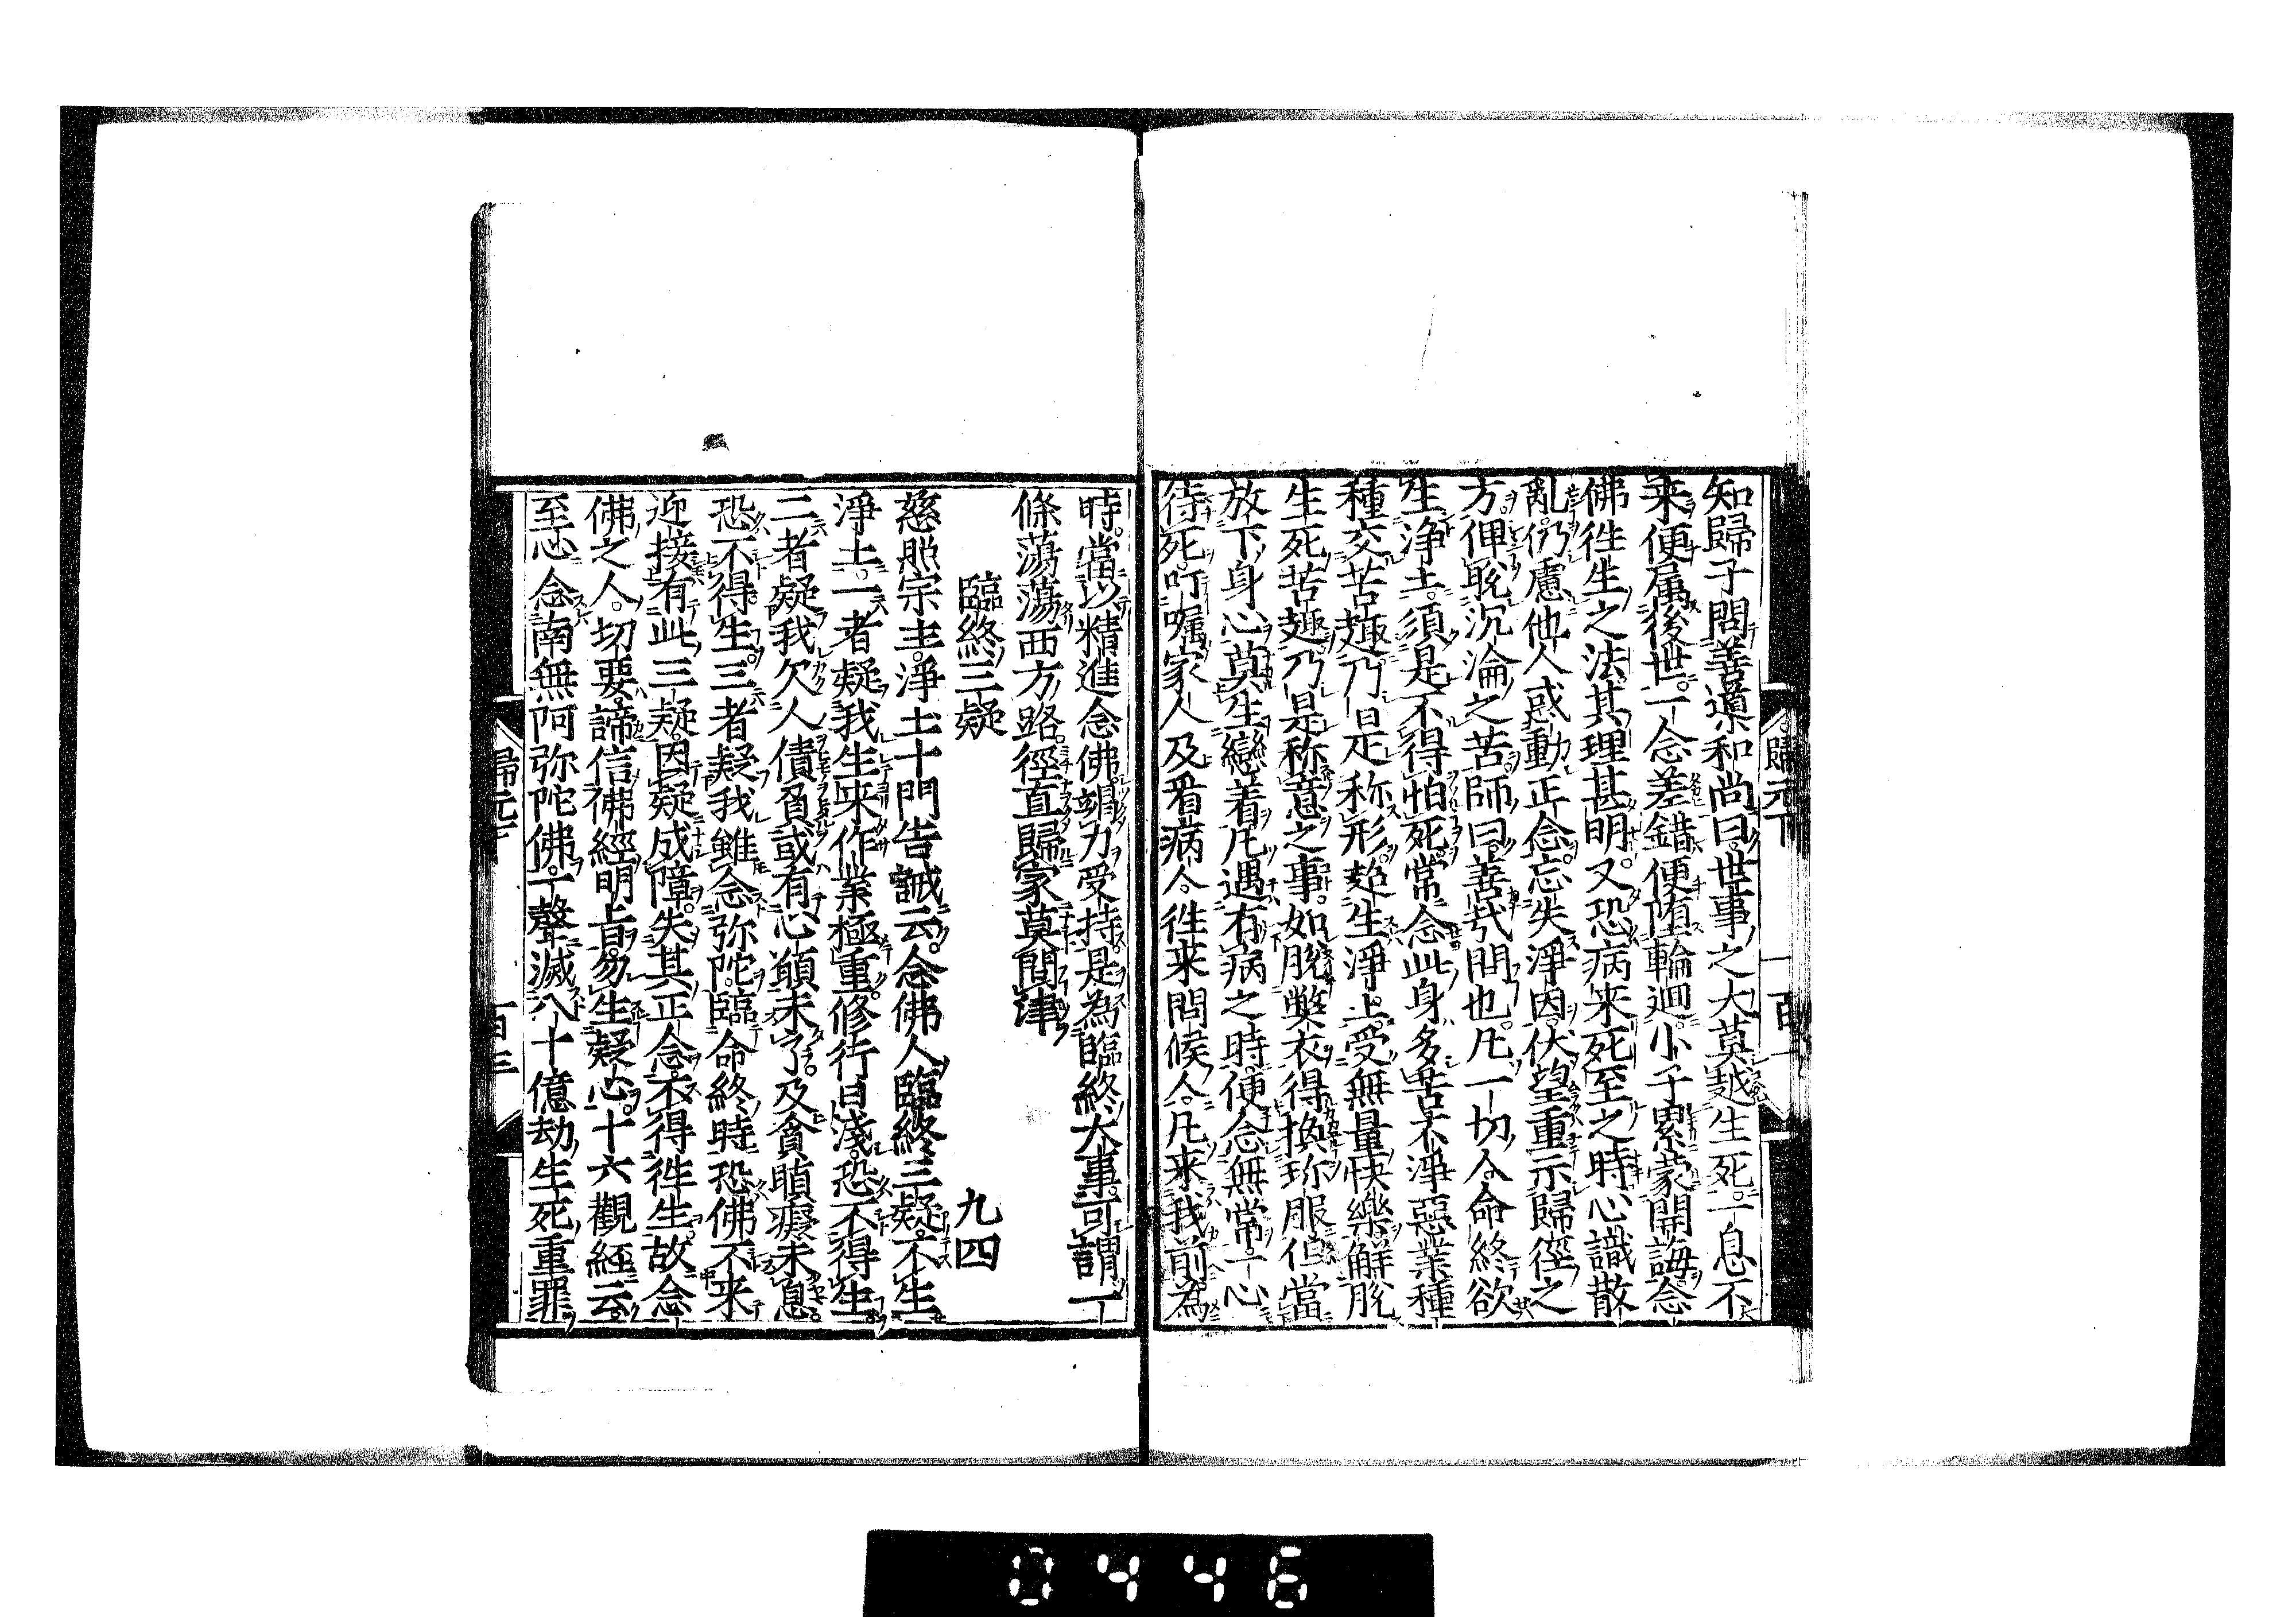 知歸子問善導和尚曰世事之大莫越生死一息不
来便属後世一念差錯便堕輪迴小子累蒙開誨念
佛徃生之法其理甚明又恐病来死至之時心識散
亂仍慮他人惑動正念忘失淨因伏望重示歸徑之
方俾脫沉淪之苦師曰善哉問也凡一切人命終欲
生淨土須是不得怕死常念此身多苦不淨惡業種
種交苦趣乃是称形超生淨土受無量快樂解脫
生死苦趣乃是称意之事如脫弊衣得換珎服但當
放下身心莫生戀着凡遇有病之時便念無常一心
待死叮嘱家人及看病人徃来問候人凡来我前為
歸元下
一百
時當以精進念佛竭力受持是為臨終大事可謂一
條蕩蕩西方路徑直歸家莫問津
臨終三疑 九四
慈照宗主淨土十門告誡云念佛人臨終三疑不生
淨土一者疑我生来作業極重修行日淺恐不得生
二者疑我欠人債負或有心願未了及貪瞋癡未息
恐不得生三者疑我雖念弥陀臨命終時恐佛不来
迎接有此三疑因疑成障失其正念不得徃生故念
佛之人切要諦信佛經明旨勿生疑心十六觀經云
至心念南無阿弥陀佛一聲滅八十億劫生死重罪
歸元下
一百三
0446